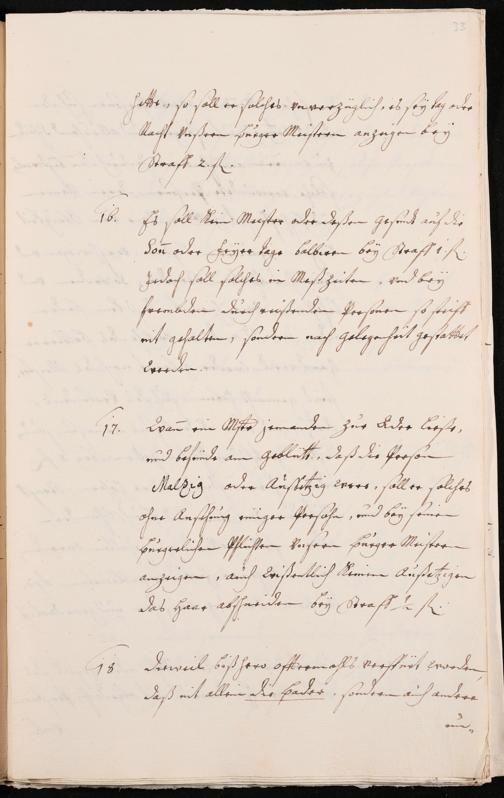 33
hette, so soll er solches unverzüglich, es seÿ tag oder
Nacht unßern Burger Meistern anzeigen beÿ
Straff 2. fl.
16. Es soll Kein Meister oder deßen gesind auf die
Son̄ oder Feÿertage balbieren beÿ Straff 1. fl.
Jedoch soll solches in Meßzeiten, und beÿ
frembden durchreißenden Personen so strickt
nit gehalten, sondern nach gelegenheit gestattet
werden.
17. Wan̄ ein Mstr jemanden zur Ader ließe,
und befinde am Geblüth, daß die Person
Malzig oder Außsetzig were, soll er solches
ohne Ansehung einiger Persohn, und beÿ seinen
bürgerlichen Pflichten unsern Burger Meistern
anzeigen, auch wißentlich Keinem Außsetzigen
das Haar abschneiden beÿ Straff fl.
18 Dieweil bißhero offtermahls verspürt worden,
daß nit allein die Bader, sondern auch andere